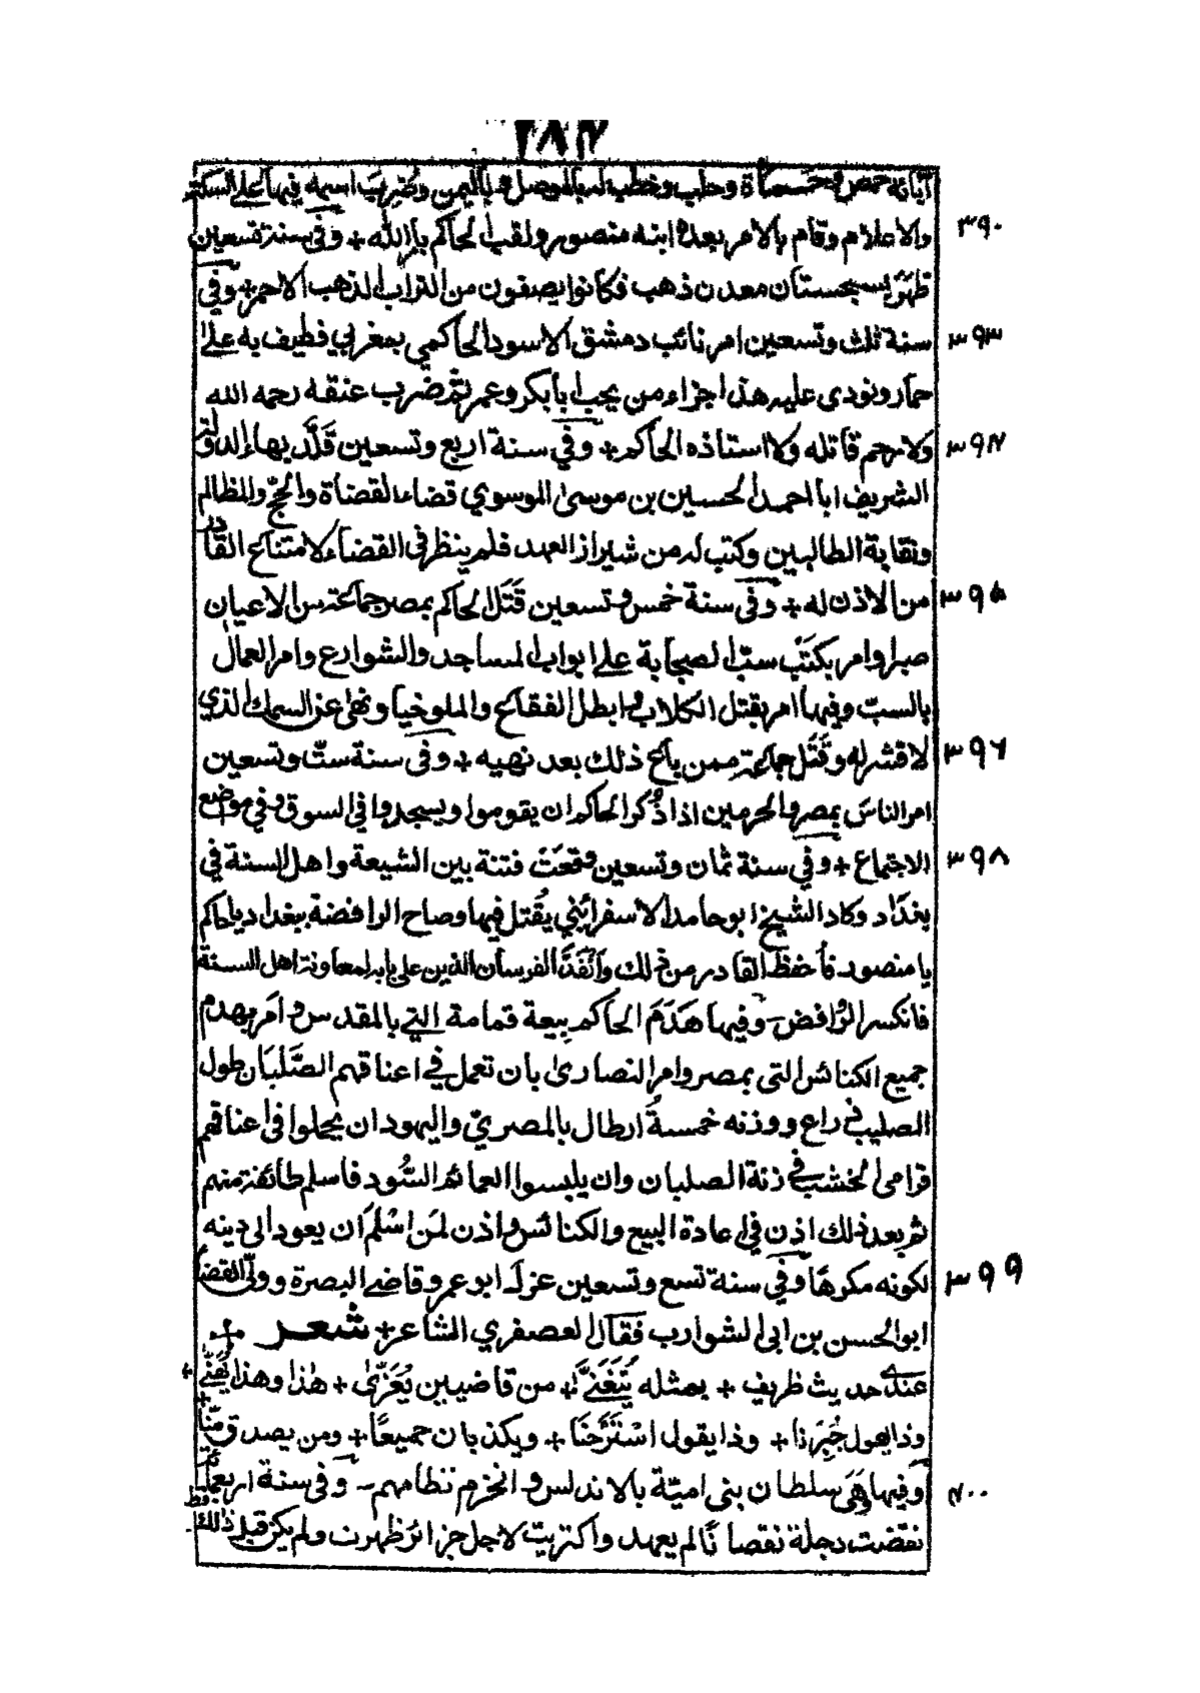 ٢٨٧
آبائه حمص وحماة وحلب وخطب له بالموصل وباليمن وضرب اسمه فيها على السكة
والاعلام وقام بالامر بعده ابنه منصور ولقب الحاكم بامر الله + وفي سنة تسعين ٣٩٠
ظهر بسجستان معدن ذهب فكانوا يصفون من التراب الذهب الاحمر + وفي
سنة ثلث وتسعين امر نائب دمشق الاسود الحاكمي بمغربي فطيف به على ٣٩٣
حمار ونودي عليه هذا جزاء من يحب ابا بكر وعمر ثم ضرب عنقه رحمه الله
ولا رحم قاتله ولا استاذه الحاكم + وفي سنة اربع وتسعين قلّد بهاء الدولة ٣٩٤
الشريف ابا احمد الحسين بن موسى الموسوي قضاء القضاة والحج والمظالم
ونقابة الطالبين وكتب له من شيراز العهد فلم ينظر في القضاء لامتناع القادر
من الاذن له + وفي سنة خمس وتسعين قتل الحاكم بمصر جماعة من الاعيان ٣٩٥
صبرا وامر بكتب سب الصحابة على ابواب المساجد والشوارع وامر العمال
بالسب وفيها امر بقتل الكلاب وابطل الفقاع والملوخيا ونهى عن السمك الذي
لا قشر له وقتل جماعة ممن باع ذلك بعد نهيه + وفي سنة ست وتسعين ٣٩٦
امر الناس بمصر والحرمين اذا ذكر الحاكم ان يقوموا ويسجدوا في السوق وفي مواضع
الاجتماع + وفي سنة ثمان وتسعين وقعت فتنة بين الشيعة واهل السنة في ٣٩٨
بغداد وكاد الشيخ ابو حامد الاسفرائني يقتل فيها وصاح الرافضة ببغداد يا حاكم
يا منصور فأحفظ القادر من ذلك وأنفذ الفرسان الذين على بابه لمعاونة اهل السنة
فانكسر الروافض وفيها هدم الحاكم بيعة قمامة التي بالمقدس وامر بهدم
جميع الكنائس التي بمصر وامر النصارى بان تعمل في اعناقهم الصلبان طول
الصليب ذراع ووزنه خمسة ارطال بالمصري واليهود ان يحملوا في اعناقهم
قرامي الخشب في زنة الصلبان وان يلبسوا العمائم السُّود فاسلم طائفة منهم
ثم بعد ذلك اذن في اعادة البيع والكنائس واذن لمن اسلم ان يعود الى دينه
لكونه مكرها وفي سنة تسع وتسعين عزل ابو عمر وقاضي البصرة وولي القضاء ٣٩٩
ابو الحسن بن ابي الشوارب فقال العصفري الشاعر + شعر +
عندي حديث ظريف + بمثله يُتَغَنّى + من قاضيين يُعَزّى + هذا وهذا يُهَنّى +
وذا يقول جبرنا + وذا يقول استرحنا + ويكذبان جميعًا + ومن يصدق منّا +
وفيها وهى سلطان بني امية بالاندلس وانخرم نظامهم وفي سنة اربعمائة ٤٠٠
نقصت دجلة نقصانًا لم يعهد واكتريت لاجل جزائر ظهرت ولم يكن قبل ذلك قط